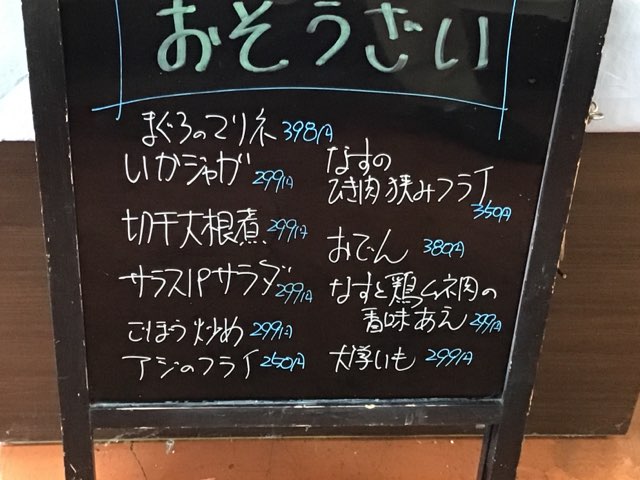 おそうざい
まぐろのマリネ 398円
いかジャガ 299円
切干大根煮 299円
サラスパサラダ 299円
ごぼう炒め 299円
アジのフライ 250円
なすの
ひき肉挟みフライ
350円
おでん 380円
なすと鶏ムネ肉の
香味あえ 299円
大学いも 299円